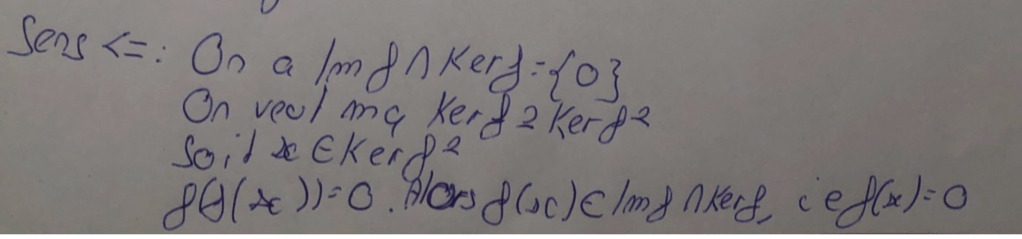 Sens <=: On a Im f ∩ Kerf = {0}
On veut mq Kerf ⊇ Kerf²
Soit x ∈ Kerf²
f(f(x))=0. Alors f(x) ∈ Im f ∩ Kerf, ie f(x)=0